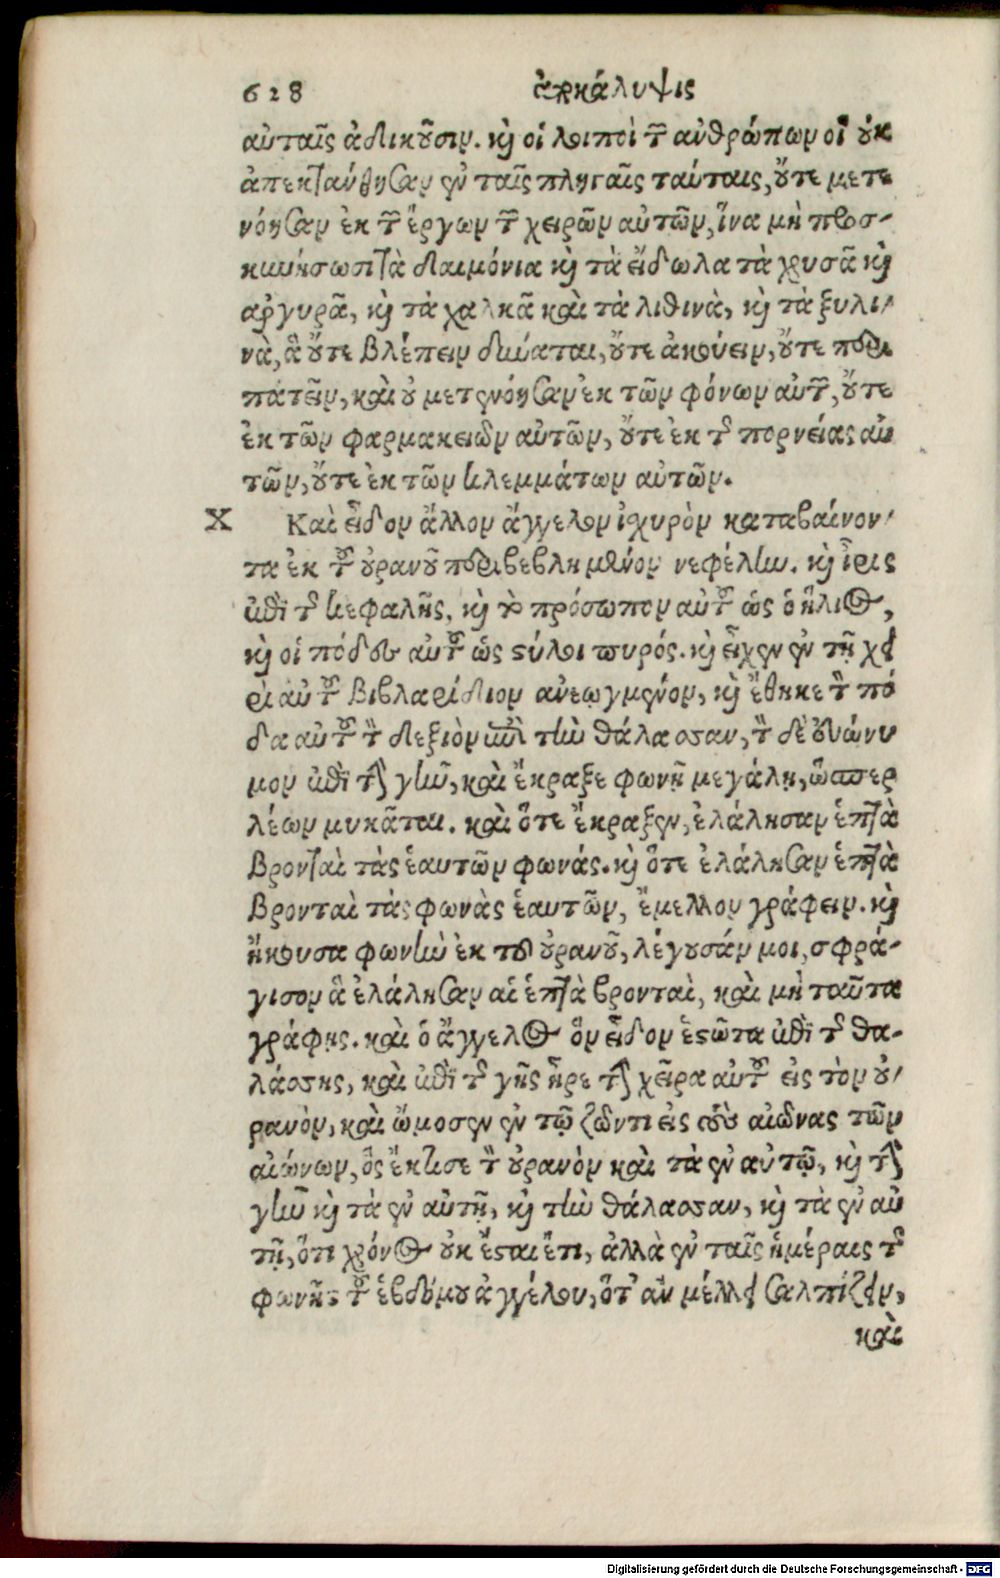 628 ἀποκάλυψις
αὐταῖς ἀδικοῦσιν. καὶ οἱ λοιποὶ τῶν ἀνθρώπων οἳ οὐκ
ἀπεκτάνθησαν ἐν ταῖς πληγαῖς ταύταις, οὔτε μετε
νόησαν ἐκ τῶν ἔργων τῶν χειρῶν αὐτῶν, ἵνα μὴ προσ-
κυνήσωσι τὰ δαιμόνια καὶ τὰ εἴδωλα τὰ χρυσᾶ καὶ
αῤγυρᾶ, καὶ τὰ χαλκᾶ καὶ τὰ λιθινὰ, καὶ τὰ ξυλι/
νὰ, ἃ οὔτε βλέπειν δύναται, οὔτε ἀκούειν, οὔτε περι
πατεῖν, καὶ οὐ μετενόησαν ἐκ τῶν φόνων αὐτῶν, οὔτε
ἐκ τῶν φαρμακειῶν αὐτῶν, οὔτε ἐκ τῆς πορνείας αὐ
τῶν, οὔτε ἐκ τῶν κλεμμάτων αὐτῶν.
X Καὶ εἶδον ἄλλον ἄγγελον ἰσχυρὸν καταβαίνον/
τα ἐκ τοῦ οὐρανοῦ περιβεβλημένον νεφέλην. καὶ ἶρις
ἐπὶ τῆς κεφαλῆς, καὶ τὸ πρόσωπον αὐτοῦ ὡς ὁ ἥλιος,
καὶ οἱ πόδες αὐτοῦ ὡς στύλοι πυρός. καὶ εἶχεν ἐν τῇ χει
ρὶ αὐτοῦ βιβλαρίδιον ανεωγμένον, καὶ ἔθηκε τὸν πό
δα αὐτοῦ τὸν δεξιὸν ἐπὶ τὴν θάλασσαν, τὸν δὲ εὐώνυ
μον ἐπὶ τὴν γῆν, καὶ ἔκραξε φωνῇ μεγάλῃ, ὥσπερ
λέων μυκᾶται. καὶ ὅτε ἔκραξεν, ἐλάλησαν ἑπτὰ
βρονταὶ τὰς ἑαυτῶν φωνάς. καὶ ὅτε ἐλάλησαν ἑπτὰ
βρονταὶ τὰς φωνὰς ἑαυτῶν, ἔμελλον γράφειν. καὶ
ἤκουσα φωνὴν ἐκ τοῦ οὐρανοῦ, λέγουσάν μοι, σφρά-
γισον ἃ ἐλάλησαν αἱ ἑπτὰ βρονταὶ, καὶ μὴ ταῦτα
γράφῃς. καὶ ὁ ἄγγελος ὃν εἶδον ἑστῶτα ἐπὶ τῆς θα-
λάσσης, καὶ ἐπὶ τῆς γῆς ἦρε τὴν χεῖρα αὐτοῦ εἰς τὸν οὐ/
ρανὸν, καὶ ὤμοσεν ἐν τῷ ζῶντι εἰς τοὺς αἰῶνας τῶν
αἰώνων, ὃς ἔκτισε τὸν οὐρανὸν καὶ τὰ ἐν αὐτῷ, καὶ τὴν
γῆν καὶ τὰ ἐν αὐτῇ, καὶ τὴν θάλασσαν, καὶ τὰ ἐν αὐ
τῇ, ὅτι χρόνος οὐκ ἔσται ἔτι, ἀλλὰ ἐν ταῖς ἡμέραις τῆς
φωνῆς τοῦ ἑβδόμου ἀγγέλου, ὅτ' αν μέλλει σαλπίζειν,
καὶ
Digitalisierung gefördert durch die Deutsche Forschungsgemeinschaft - DFG